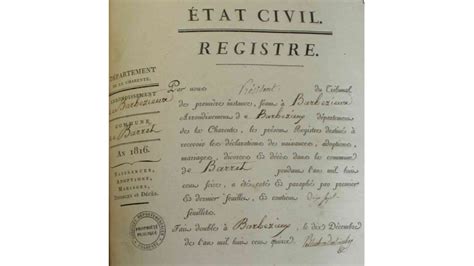 ÉTAT CIVIL.
REGISTRE.
DÉPARTEMENT
DE LA CHARENTE.
ARRONDISSEMENT
de Barbezieux
COMMUNE
de Barret
AN 1816.
NAISSANCES,
ADOPTIONS,
MARIAGES,
DIVORCES et DÉCÈS.
Par nous Président du Tribunal
de première instance, séant à Barbezieux
Arrondissement de Barbezieux département
de la Charente, le présent Registre destiné à
recevoir les déclarations de naissances, adoptions,
mariages, divorces et décès dans la commune
de Barret pendant l'an mil huit
cent seize, a été coté et paraphé par premier
et dernier feuillet, et contenu dix sept
feuillets.
Fait double à Barbezieux, le dix Décembre
de l'an mil huit cent quinze.
ARCHIVES DÉPARTEMENTALES
PROPRIÉTÉ
PUBLIQUE
CHARENTE